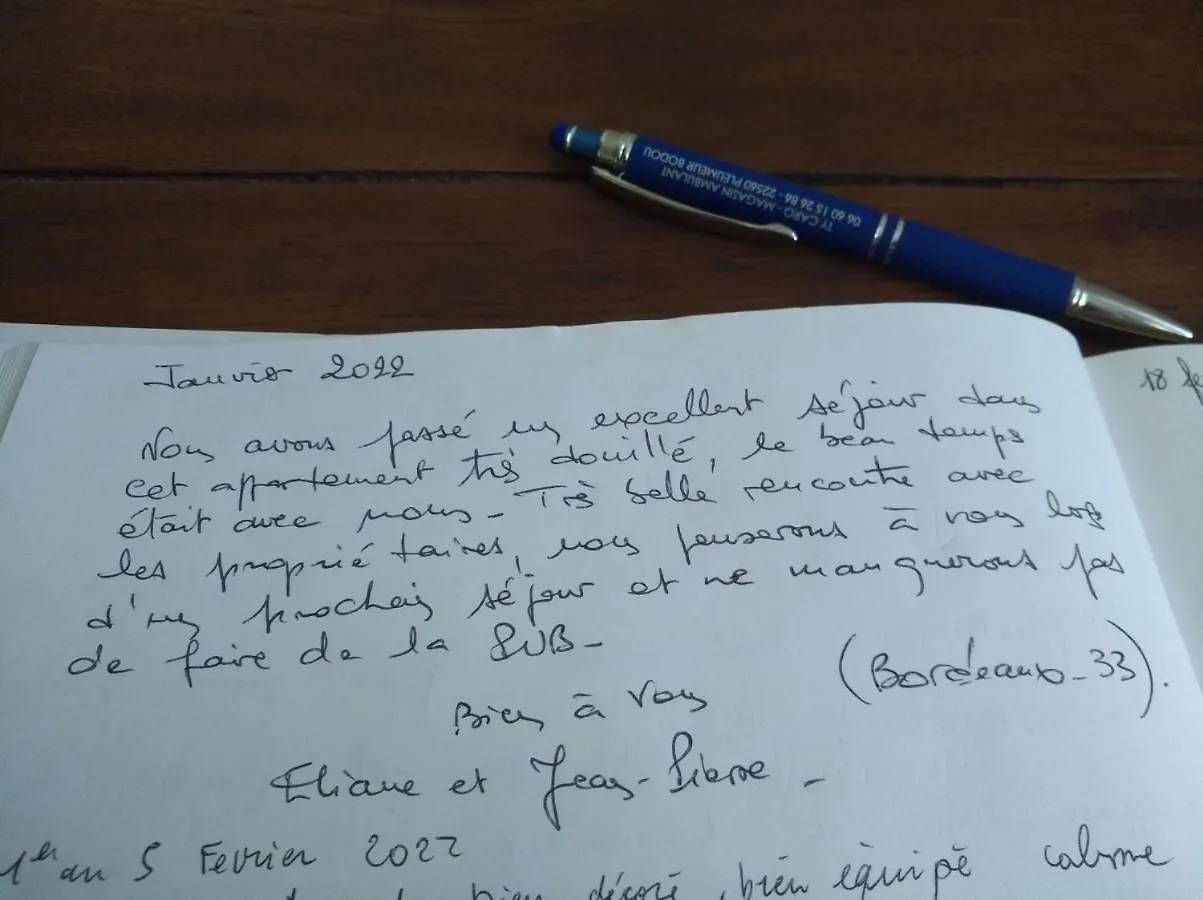 TY CARO - MAGASIN AMBULANT
06 60 15 26 86 - 22560 PLEUMEUR BODOU
Janvier 2022
Nous avons passé un excellent séjour dans
cet appartement très douillé, le beau temps
était avec nous - Très belle rencontre avec
les propriétaires, nous penserons à vous lors
d'un prochain séjour et ne manquerons pas
de faire de la PUB -
(Bordeaux - 33).
Bien à vous
Eliane et Jean-Pierre -
1er au 5 Fevrier 2022
bien décoré, bien équipé calme
18